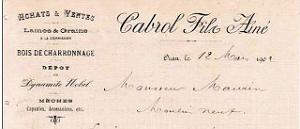 ACHATS & VENTES
Lames & Grains
À LA COMMISSION
BOIS DE CHARRONNAGE
DÉPÔT
de
Dynamite Nobel
MÈCHES
Capsules, Accessoires, etc.
Cabrol Fils Aîné
Oran, le 12 Mai 190
Monsieur Maurin
Moulin neuf.